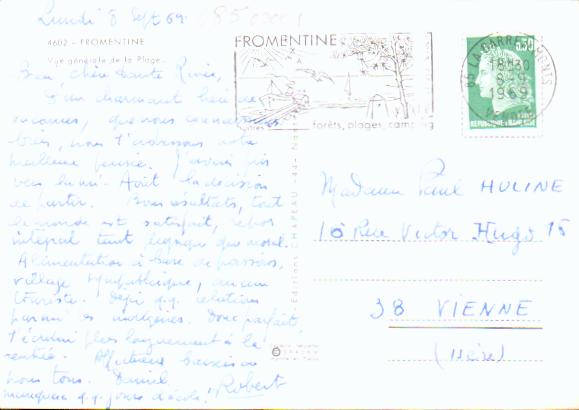 Lundi 8 Sept 69
4602 - FROMENTINE
Vue générale de la Plage
Bien chère Tante
D'un charmant lieu de
vacances, que nous connaissons
bien, nous t'envoyons notre
meilleure pensée. J'avais pris
vers la mi-Août la décision
de partir. Bons résultats, tout
le monde est satisfait, repos
intégral tant physique que moral.
Alimentation à base de poissons,
village sympathique, aucun
touriste. Déjà q.q. relations
parmi les indigènes. Donc parfait,
t'écrirai plus longuement à la
rentrée. Affectueux baisers de
nous tous. Daniel
manquera q.q. jours d'école. Robert
Editions CHAPEAU - 44 - Na
FROMENTINE
forêts, plages, camping
85 LA BARRE DE MONTS
18H30
8-9
1969
VENDEE
0,30
REPUBLIQUE FRANCAISE
Madame Paul HULINE
16 Rue Victor Hugo 15
38 VIENNE
(Isère)